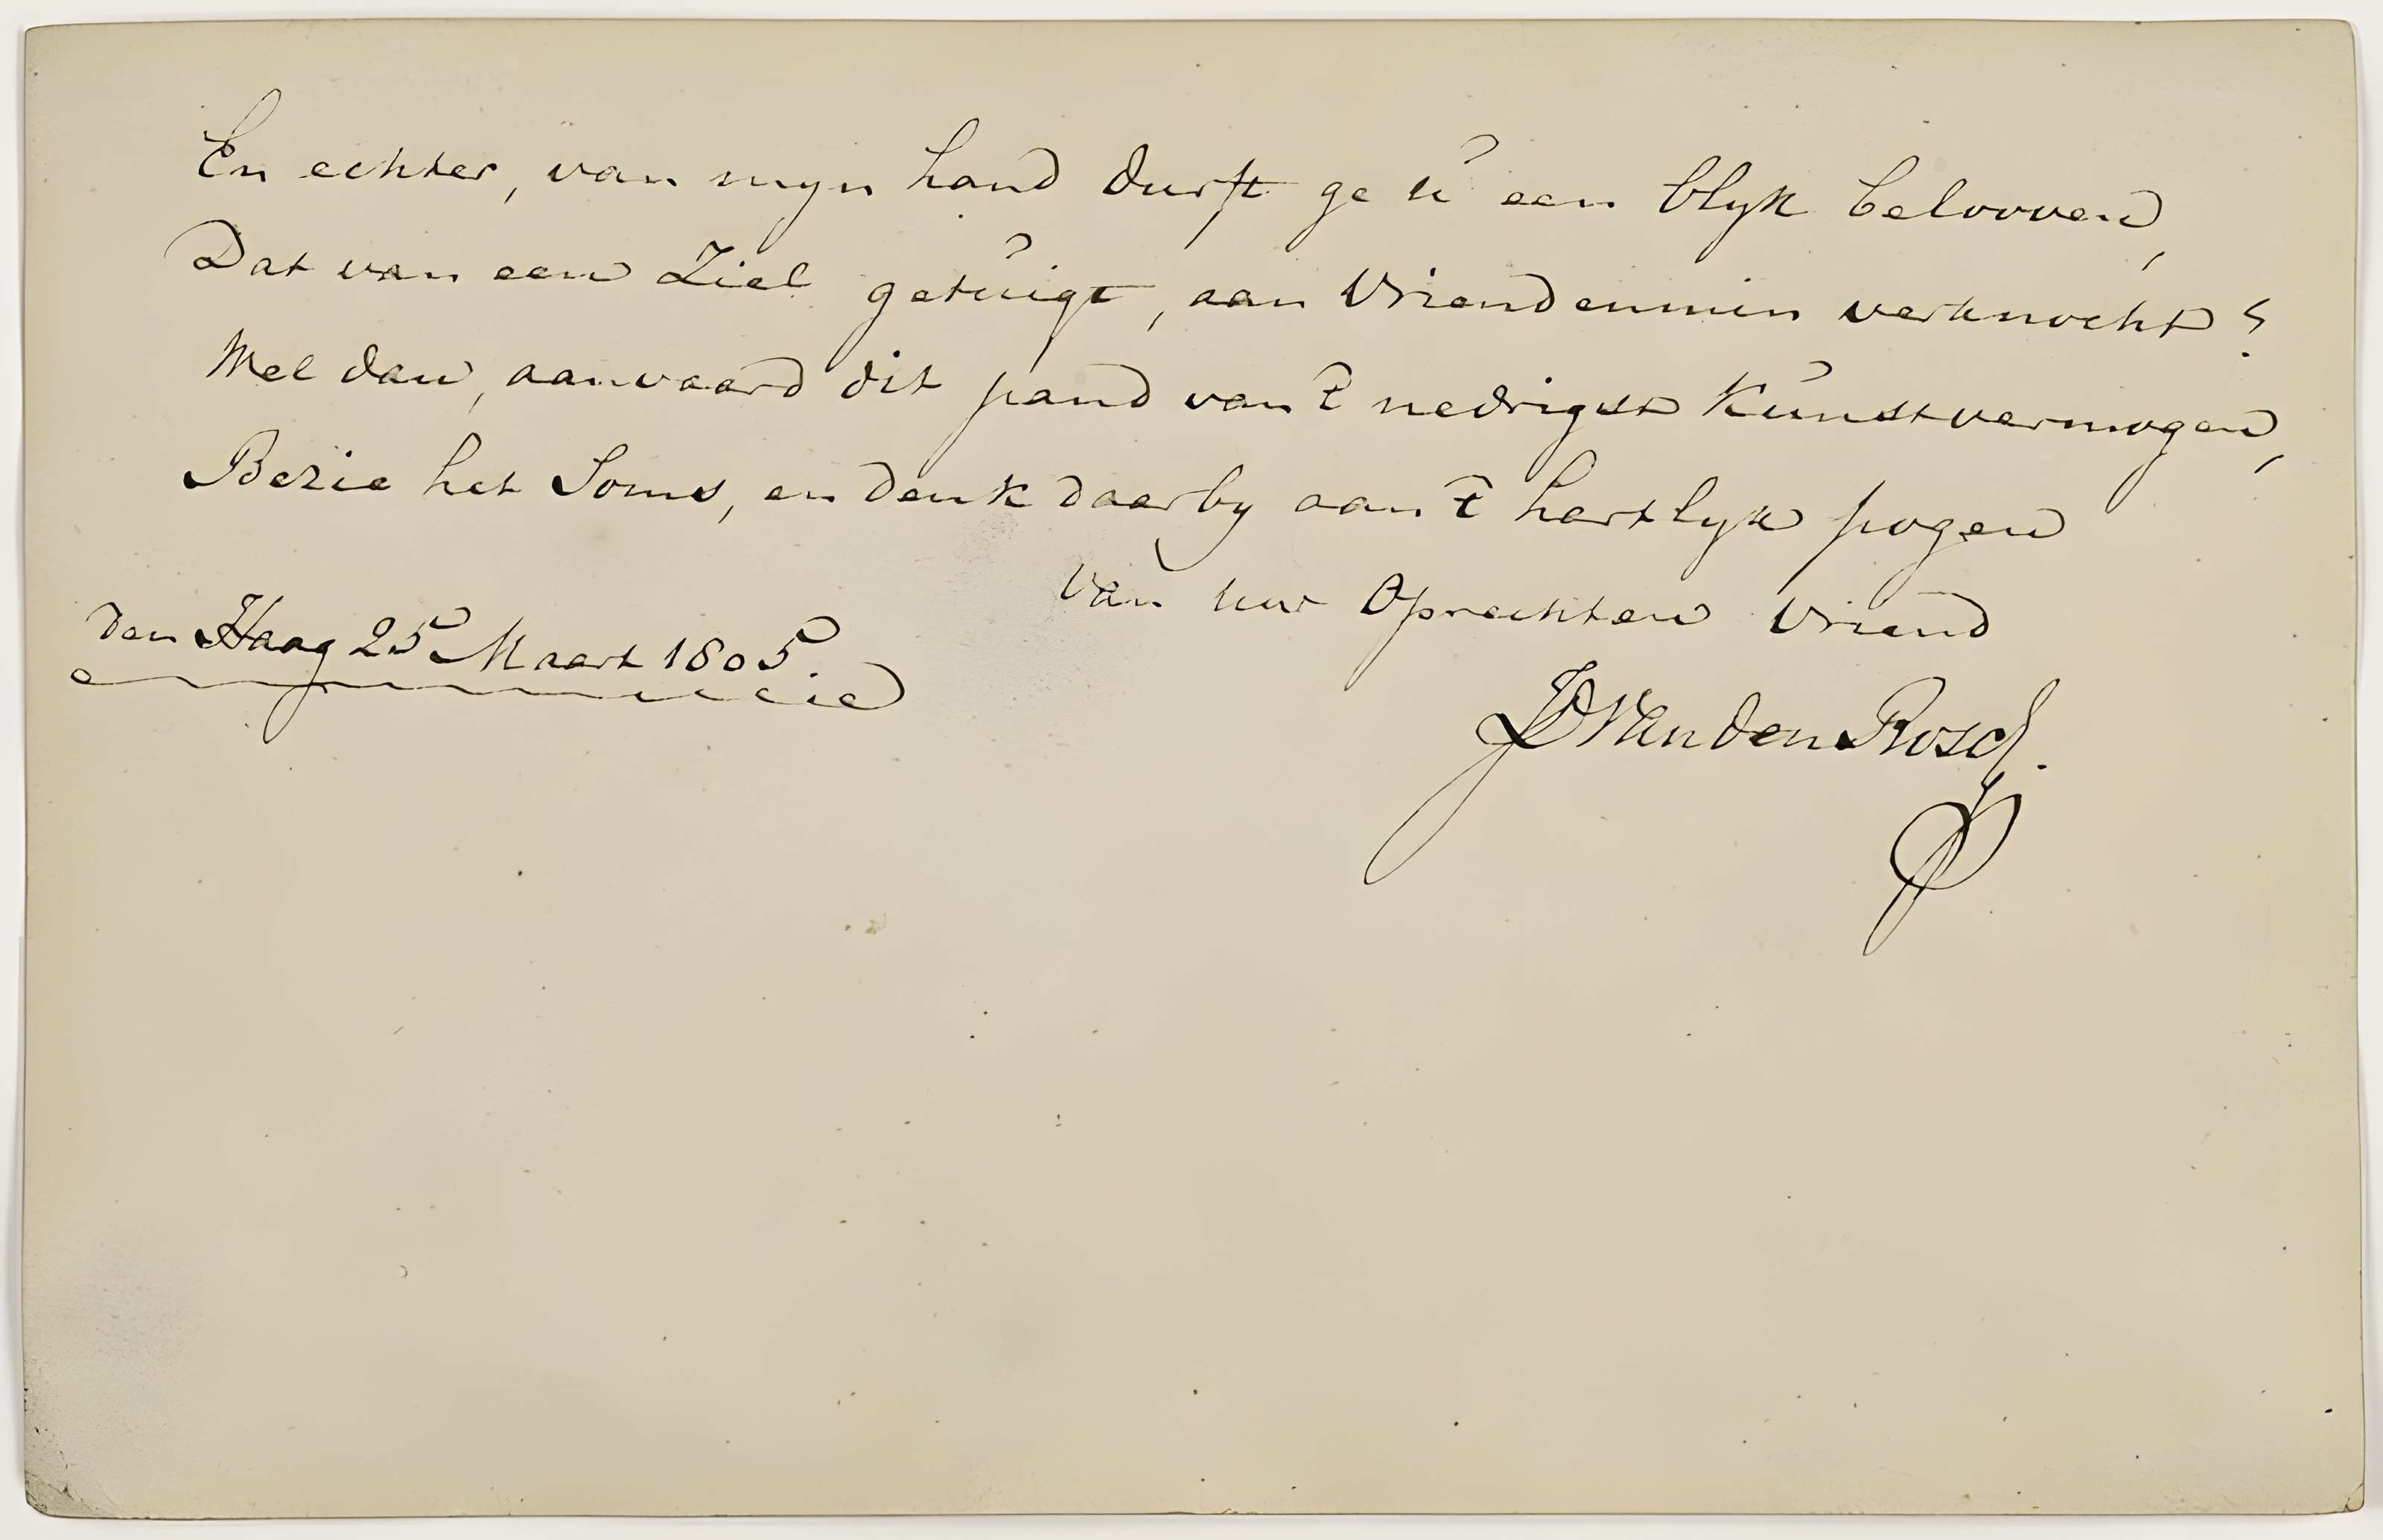 En echter, van mijn hand durft ge u een blijk beloven,
Dat van een Ziel getuigt, aan Vriendenmin verknocht?
Wel dan, aanvaard dit pand van 't nedrigst Kunstvermogen,
Bezie het Soms, en denk daarby aan 't hartlyk pogen
van uw Oprechten Vriend
den Haag 25 Maart 1805.
JD Van den Bosch.